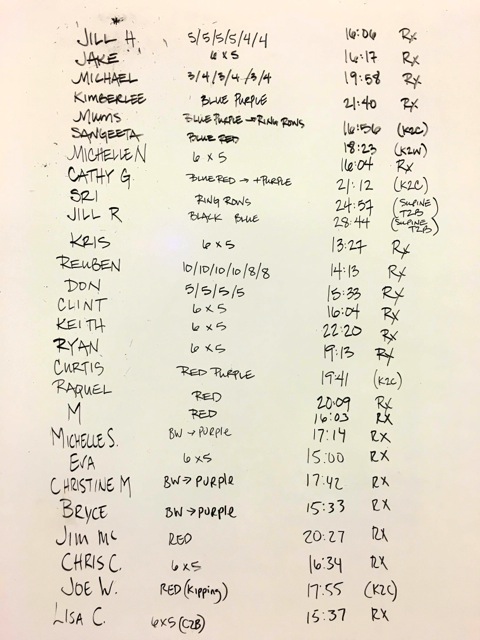 JILL H. 5/5/5/5/4/4 16:06 Rx
JAKE 6 x 5 16:17 Rx
MICHAEL 3/4/3/4/3/4 19:58 Rx
KIMBERLEE BLUE PURPLE 21:40 Rx
MUMS BLUE PURPLE → RING ROWS 16:56 (K2C)
SANGEETA BLUE RED 18:23 (K2W)
MICHELLE N 6 x 5 16:04 Rx
CATHY G. BLUE RED → + PURPLE 21:12 (K2C)
SRI RING ROWS 24:57 (SUPINE T2B)
JILL R BLACK BLUE 28:44 (SUPINE T2B)
KRIS 6 x 5 13:27 Rx
REUBEN 10/10/10/10/8/8 14:13 Rx
DON 5/5/5/5 15:33 Rx
CLINT 6 x 5 16:04 Rx
KEITH 6 x 5 22:20 Rx
RYAN 6 x 5 19:13 Rx
CURTIS RED PURPLE 19:41 (K2C)
RAQUEL RED 20:09 Rx
M RED 16:03 Rx
MICHELLE S. BW → PURPLE 17:14 RX
EVA 6 x 5 15:00 RX
CHRISTINE M BW → PURPLE 17:42 RX
BRYCE BW → PURPLE 15:33 RX
JIM MC RED 20:27 RX
CHRIS C. 6 x 5 16:34 RX
JOE W. RED (Kipping) 17:55 (K2C)
LISA C. 6 x 5 (C2B) 15:37 RX